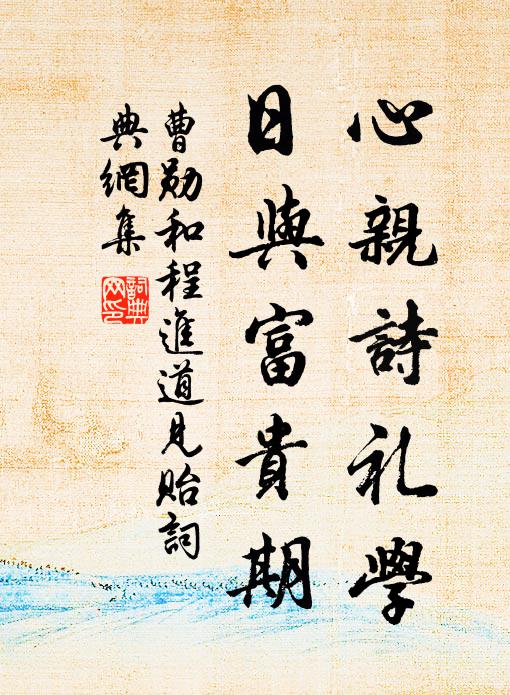 心親詩礼學
日與富貴期
曹勛和程進道見貽詞
典網集
詞典网印